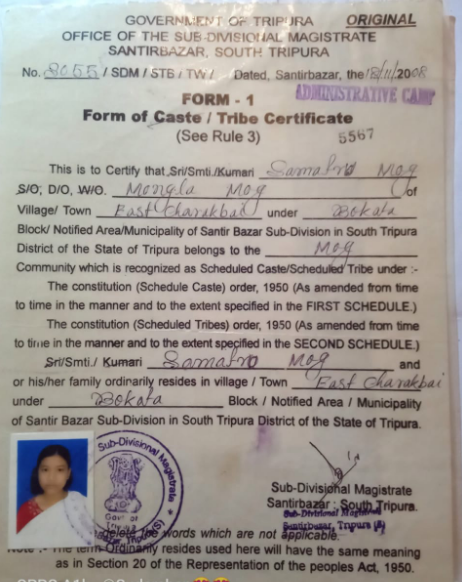 GOVERNMENT OF TRIPURA ORIGINAL
OFFICE OF THE SUB-DIVISIONAL MAGISTRATE
SANTIRBAZAR, SOUTH TRIPURA
No. 8055 / SDM / STB / TW / Dated, Santirbazar, the 18/11/2008
ADMINISTRATIVE CAMP
FORM - 1
Form of Caste / Tribe Certificate
(See Rule 3) 5567
This is to Certify that Sri/Smti./Kumari Mog
S/O, D/O, W/O. Mongla Mog of
Village/ Town East Charakbai under Bokafa
Block/ Notified Area/Municipality of Santir Bazar Sub-Division in South Tripura
District of the State of Tripura belongs to the Mog
Community which is recognized as Scheduled Caste/Scheduled Tribe under :-
The constitution (Schedule Caste) order, 1950 (As amended from time
to time in the manner and to the extent specified in the FIRST SCHEDULE.)
The constitution (Scheduled Tribes) order, 1950 (As amended from time
to time in the manner and to the extent specified in the SECOND SCHEDULE.)
Sri/Smti./ Kumari Mog and
or his/her family ordinarily resides in village / Town East Charakbai
under Bokafa Block / Notified Area / Municipality
of Santir Bazar Sub-Division in South Tripura District of the State of Tripura.
Sub-Divisional Magistrate
Govt of
Tripura
Sub-Divisional Magistrate
Santirbazar : South Tripura.
Sub-Divisional Magistrate
Santirbazar, Tripura (S)
the words which are not applicable.
Note :- The term Ordinarily resides used here will have the same meaning
as in Section 20 of the Representation of the peoples Act, 1950.